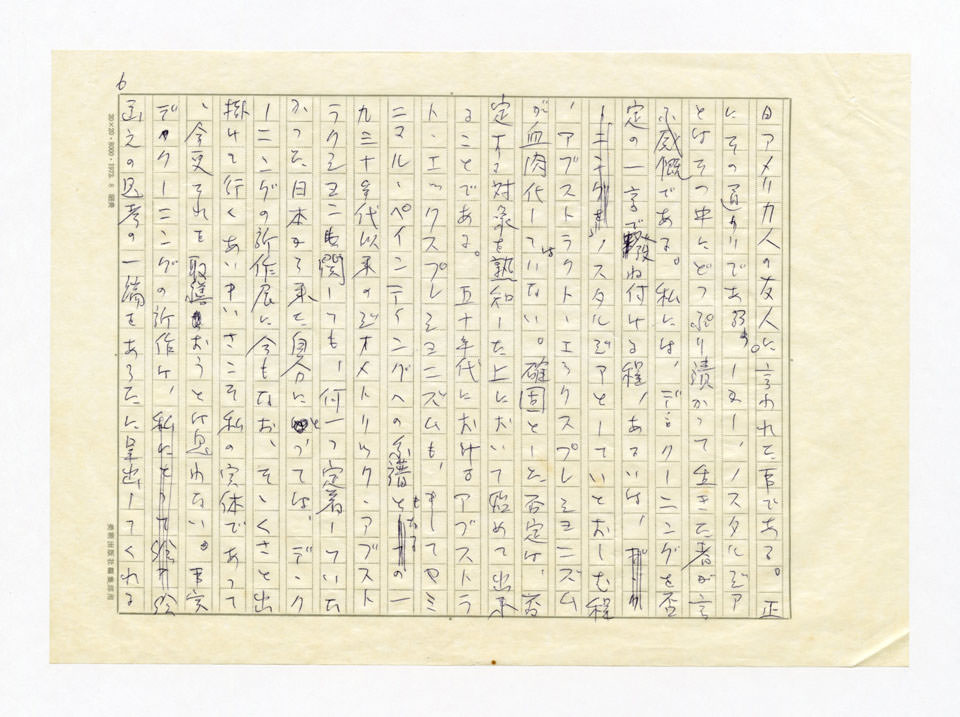 6
日アメリカ人の友人に言われた事である。正
にその通りであろう。しかし、ノスタルジア
とはその中にどっぷり漬かって生きた者が言
う感慨である。私には、デ・クーニングを否
定の一言で撥ね付ける程、あるいは、
ノスタルジアとしていとおしむ程
、アブストラクト・エックスプレショニズム
が血肉化してはいない。確固とした否定は、否
定する対象を熟知した上において始めて出来
ることである。五十年代におけるアブストラ
ト・エックスプレショニズムも、そしてやミ
ニマル・ペインティングへの系譜となるの一
九三十年代以来のジオメトリック・アブスト
ラクションに関しても、何一つ定着していな
かった日本から来た自分にとっては、デ・ク
ーニングの新作展に今もなお、そゝくさと出
掛けて行くあいまいさこそ私の実体であって
、今更それを取繕おうとは思わない。事実
デ・クーニングの新作は、私に絵
画えの思考の一端をあらたに呈出してくれる
20×20・8000・1973. 8